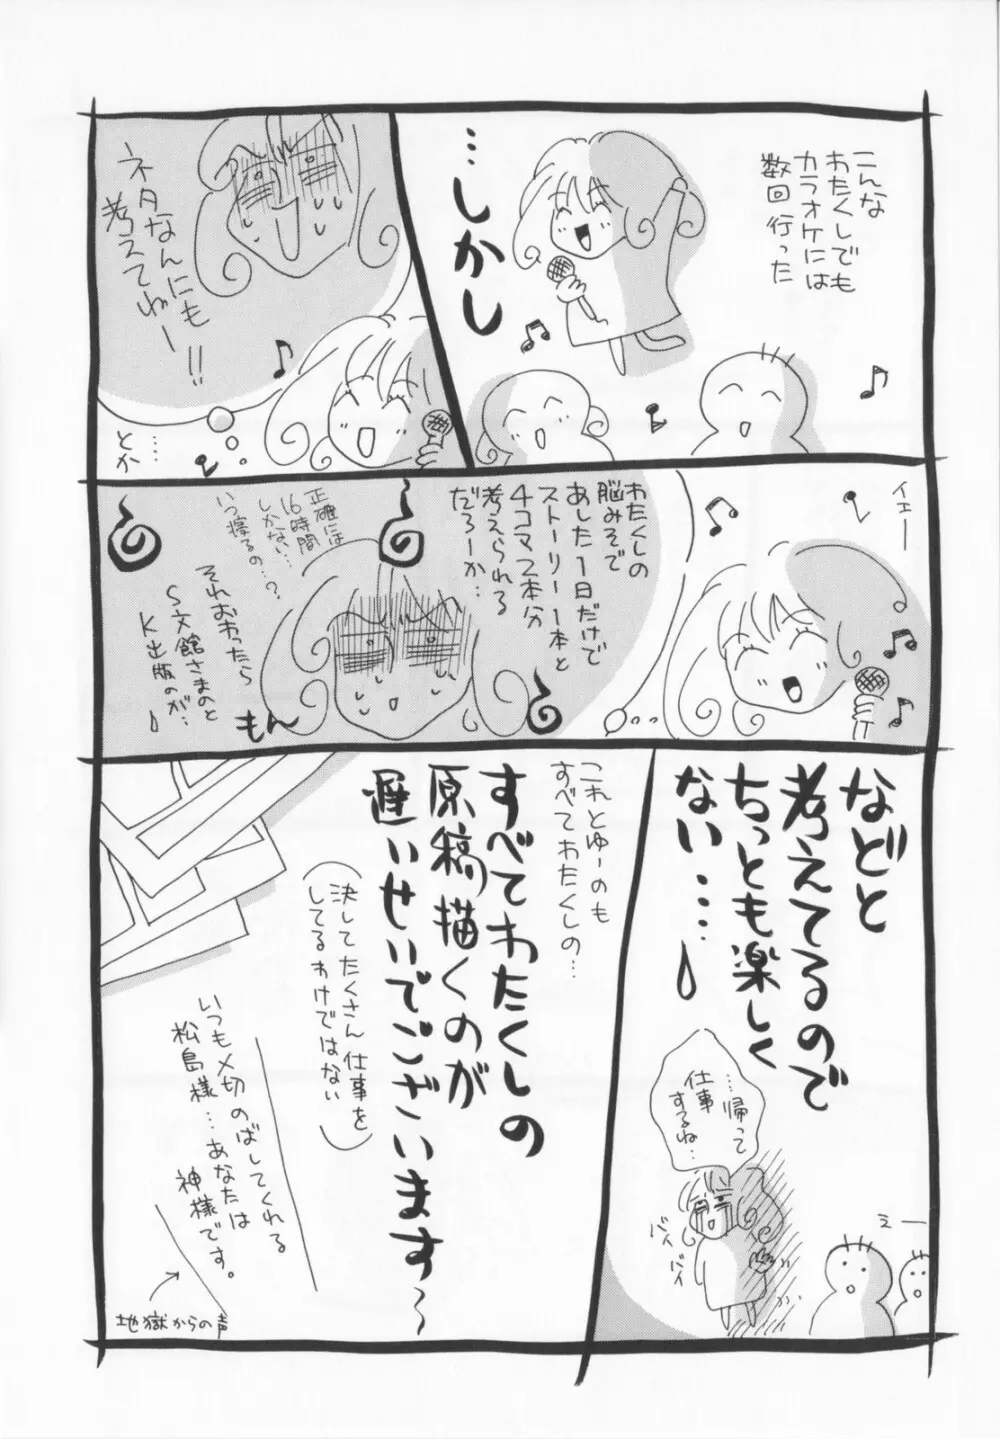 こんな
わたくしでも
カラオケには
数回行った
…しかし
ネタなんにも
考えてねー!!
…とか
イェー
わたくしの
脳みそで
あした1日だけで
ストーリー1本と
4コマ2本分
考えられる
だろーか…
正確には
16時間
しかない…
いつ寝るの…?
それおわったら
S文館さまのと
K出版のが…
もん
などと
考えてるので
ちっとも楽しく
ない…
…帰って
仕事
するね…
バイ
バイ
えー
これとゆーのも
すべてわたくしの…
すべてわたくしの
原稿描くのが
遅いせいでございます〜
(決してたくさん仕事を
してるわけではない)
いつも〆切のばしてくれる
松島様…あなたは
神様です。
地獄からの声